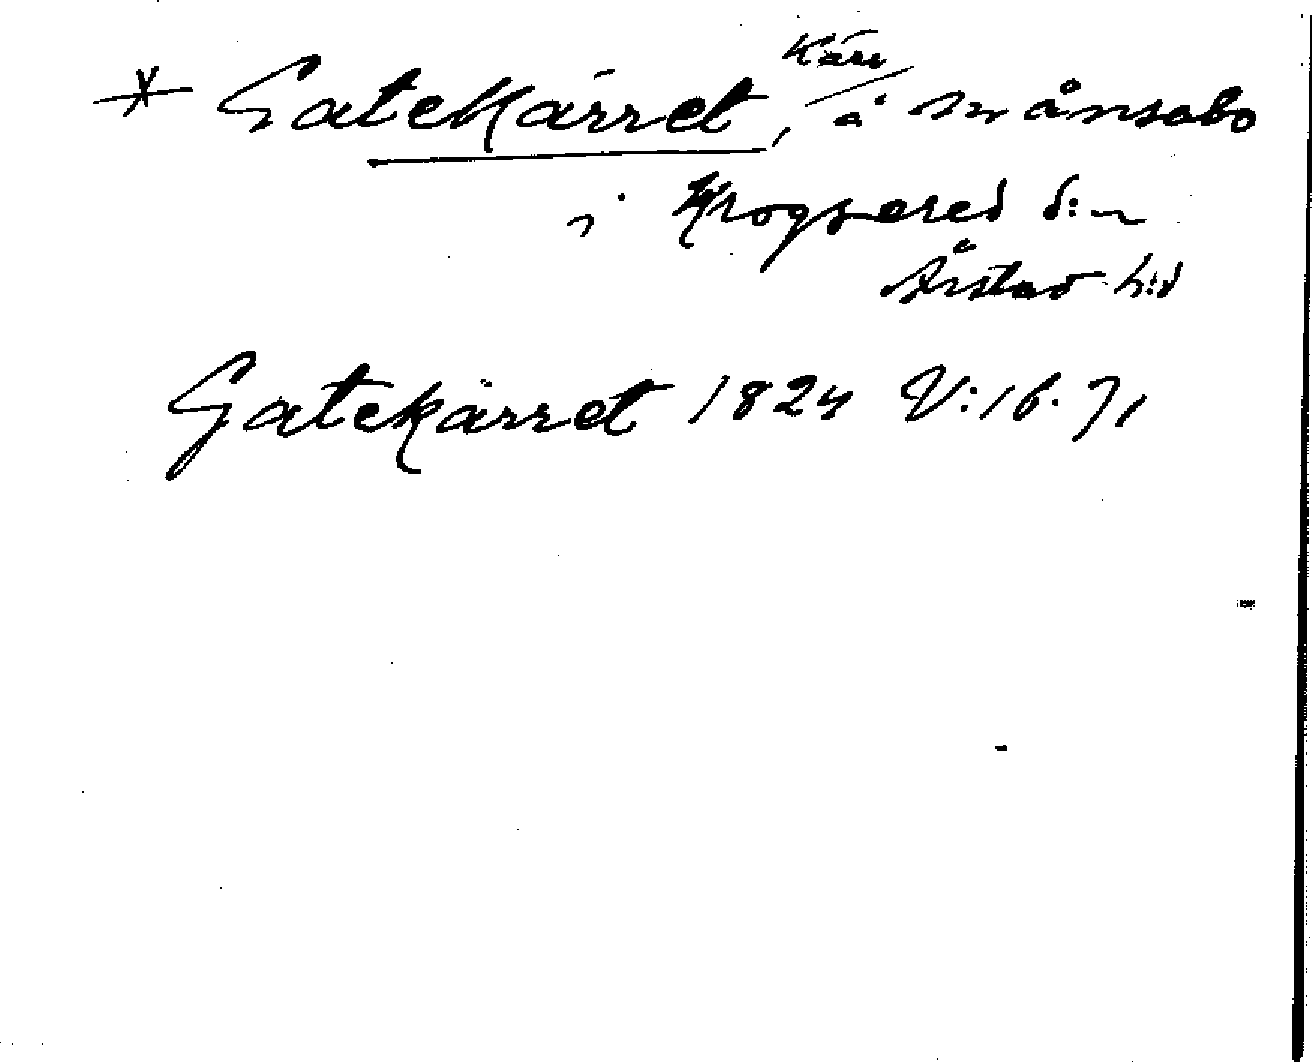 * Gatekärret, kärr å Månsabo
i Krogsered s:n
Årstad h:d
Gatekärret 1824 V:16.71